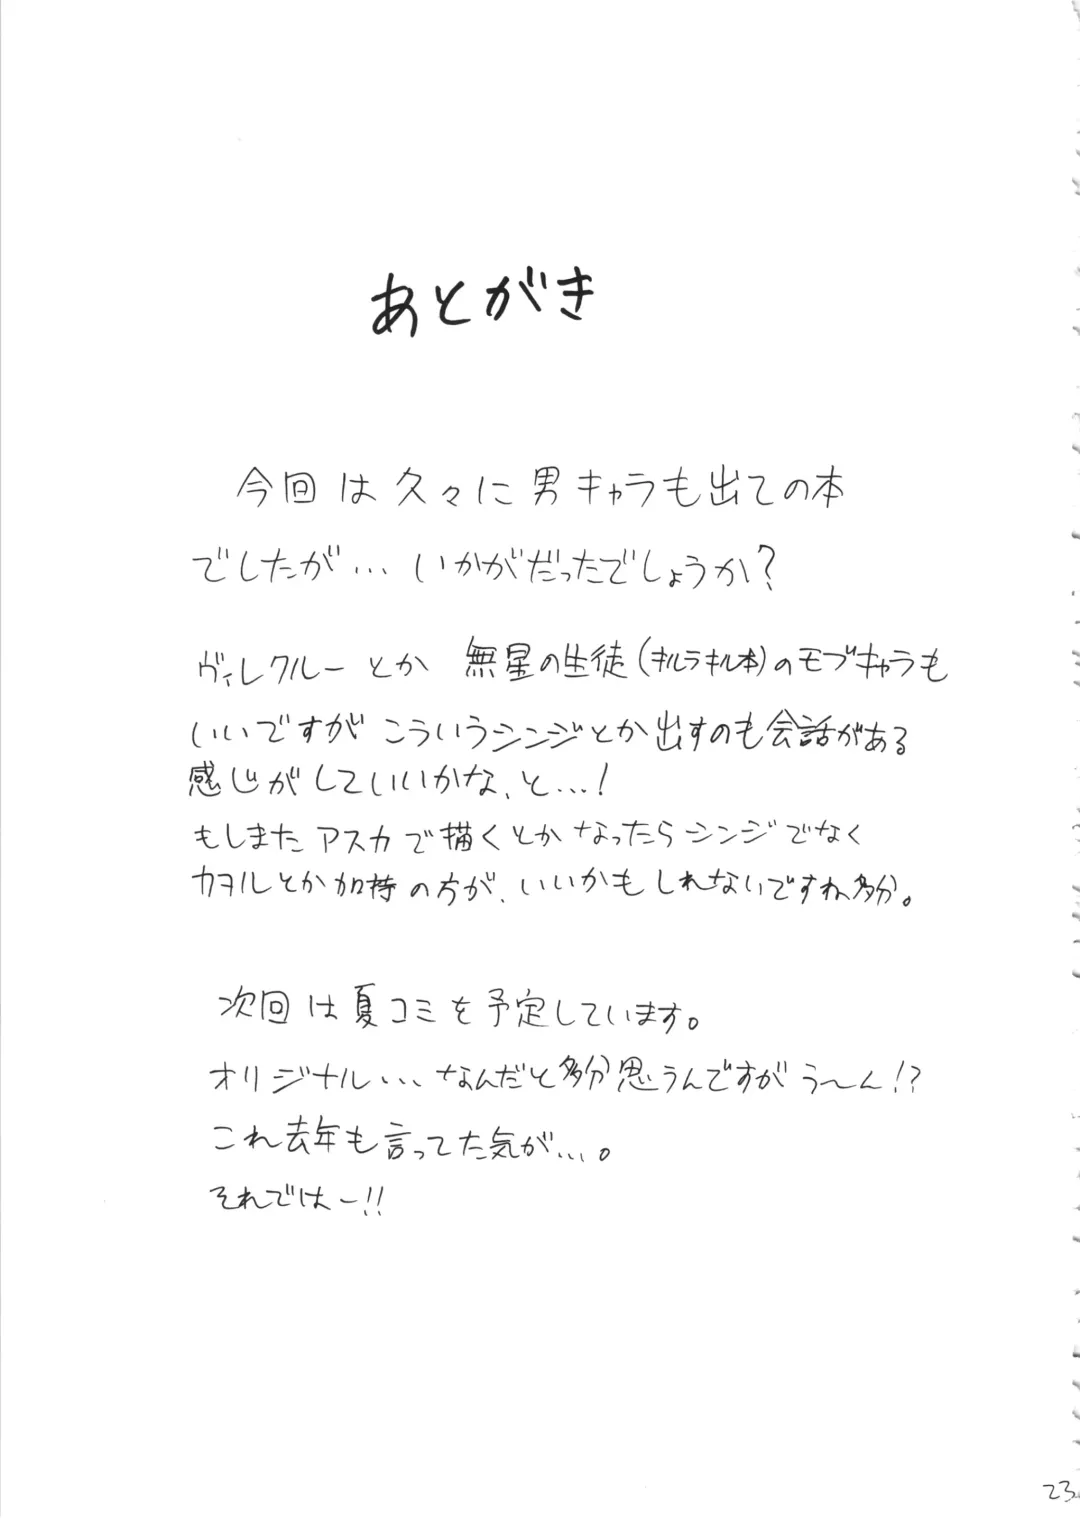 あとがき
今回は久々に男キャラも出ての本
でしたが… いかがだったでしょうか?
ヴィレクルーとか 無星の生徒(キルラキル本)のモブキャラも
いいですが こういうシンジとか出すのも会話がある
感じがしていいかな、と…!
もしまた アスカで描くとかなったら シンジでなく
カヲルとか加持の方が、いいかもしれないですね多分。
次回は夏コミを予定しています。
オリジナル… なんだと多分思うんですが う〜ん!?
これ去年も言ってた気が…。
それではー!!
23